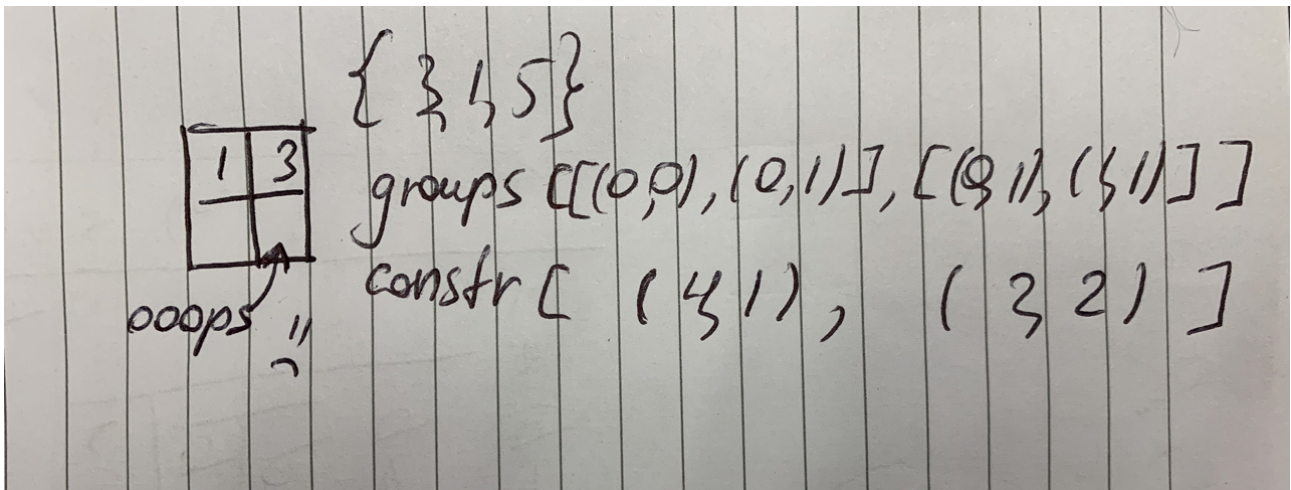 { 3, 1, 5}
1 3
groups [[(0,0), (0,1)], [(0,1), (1,1)]]
constr [ (4, 1), (3, 2) ]
ooops